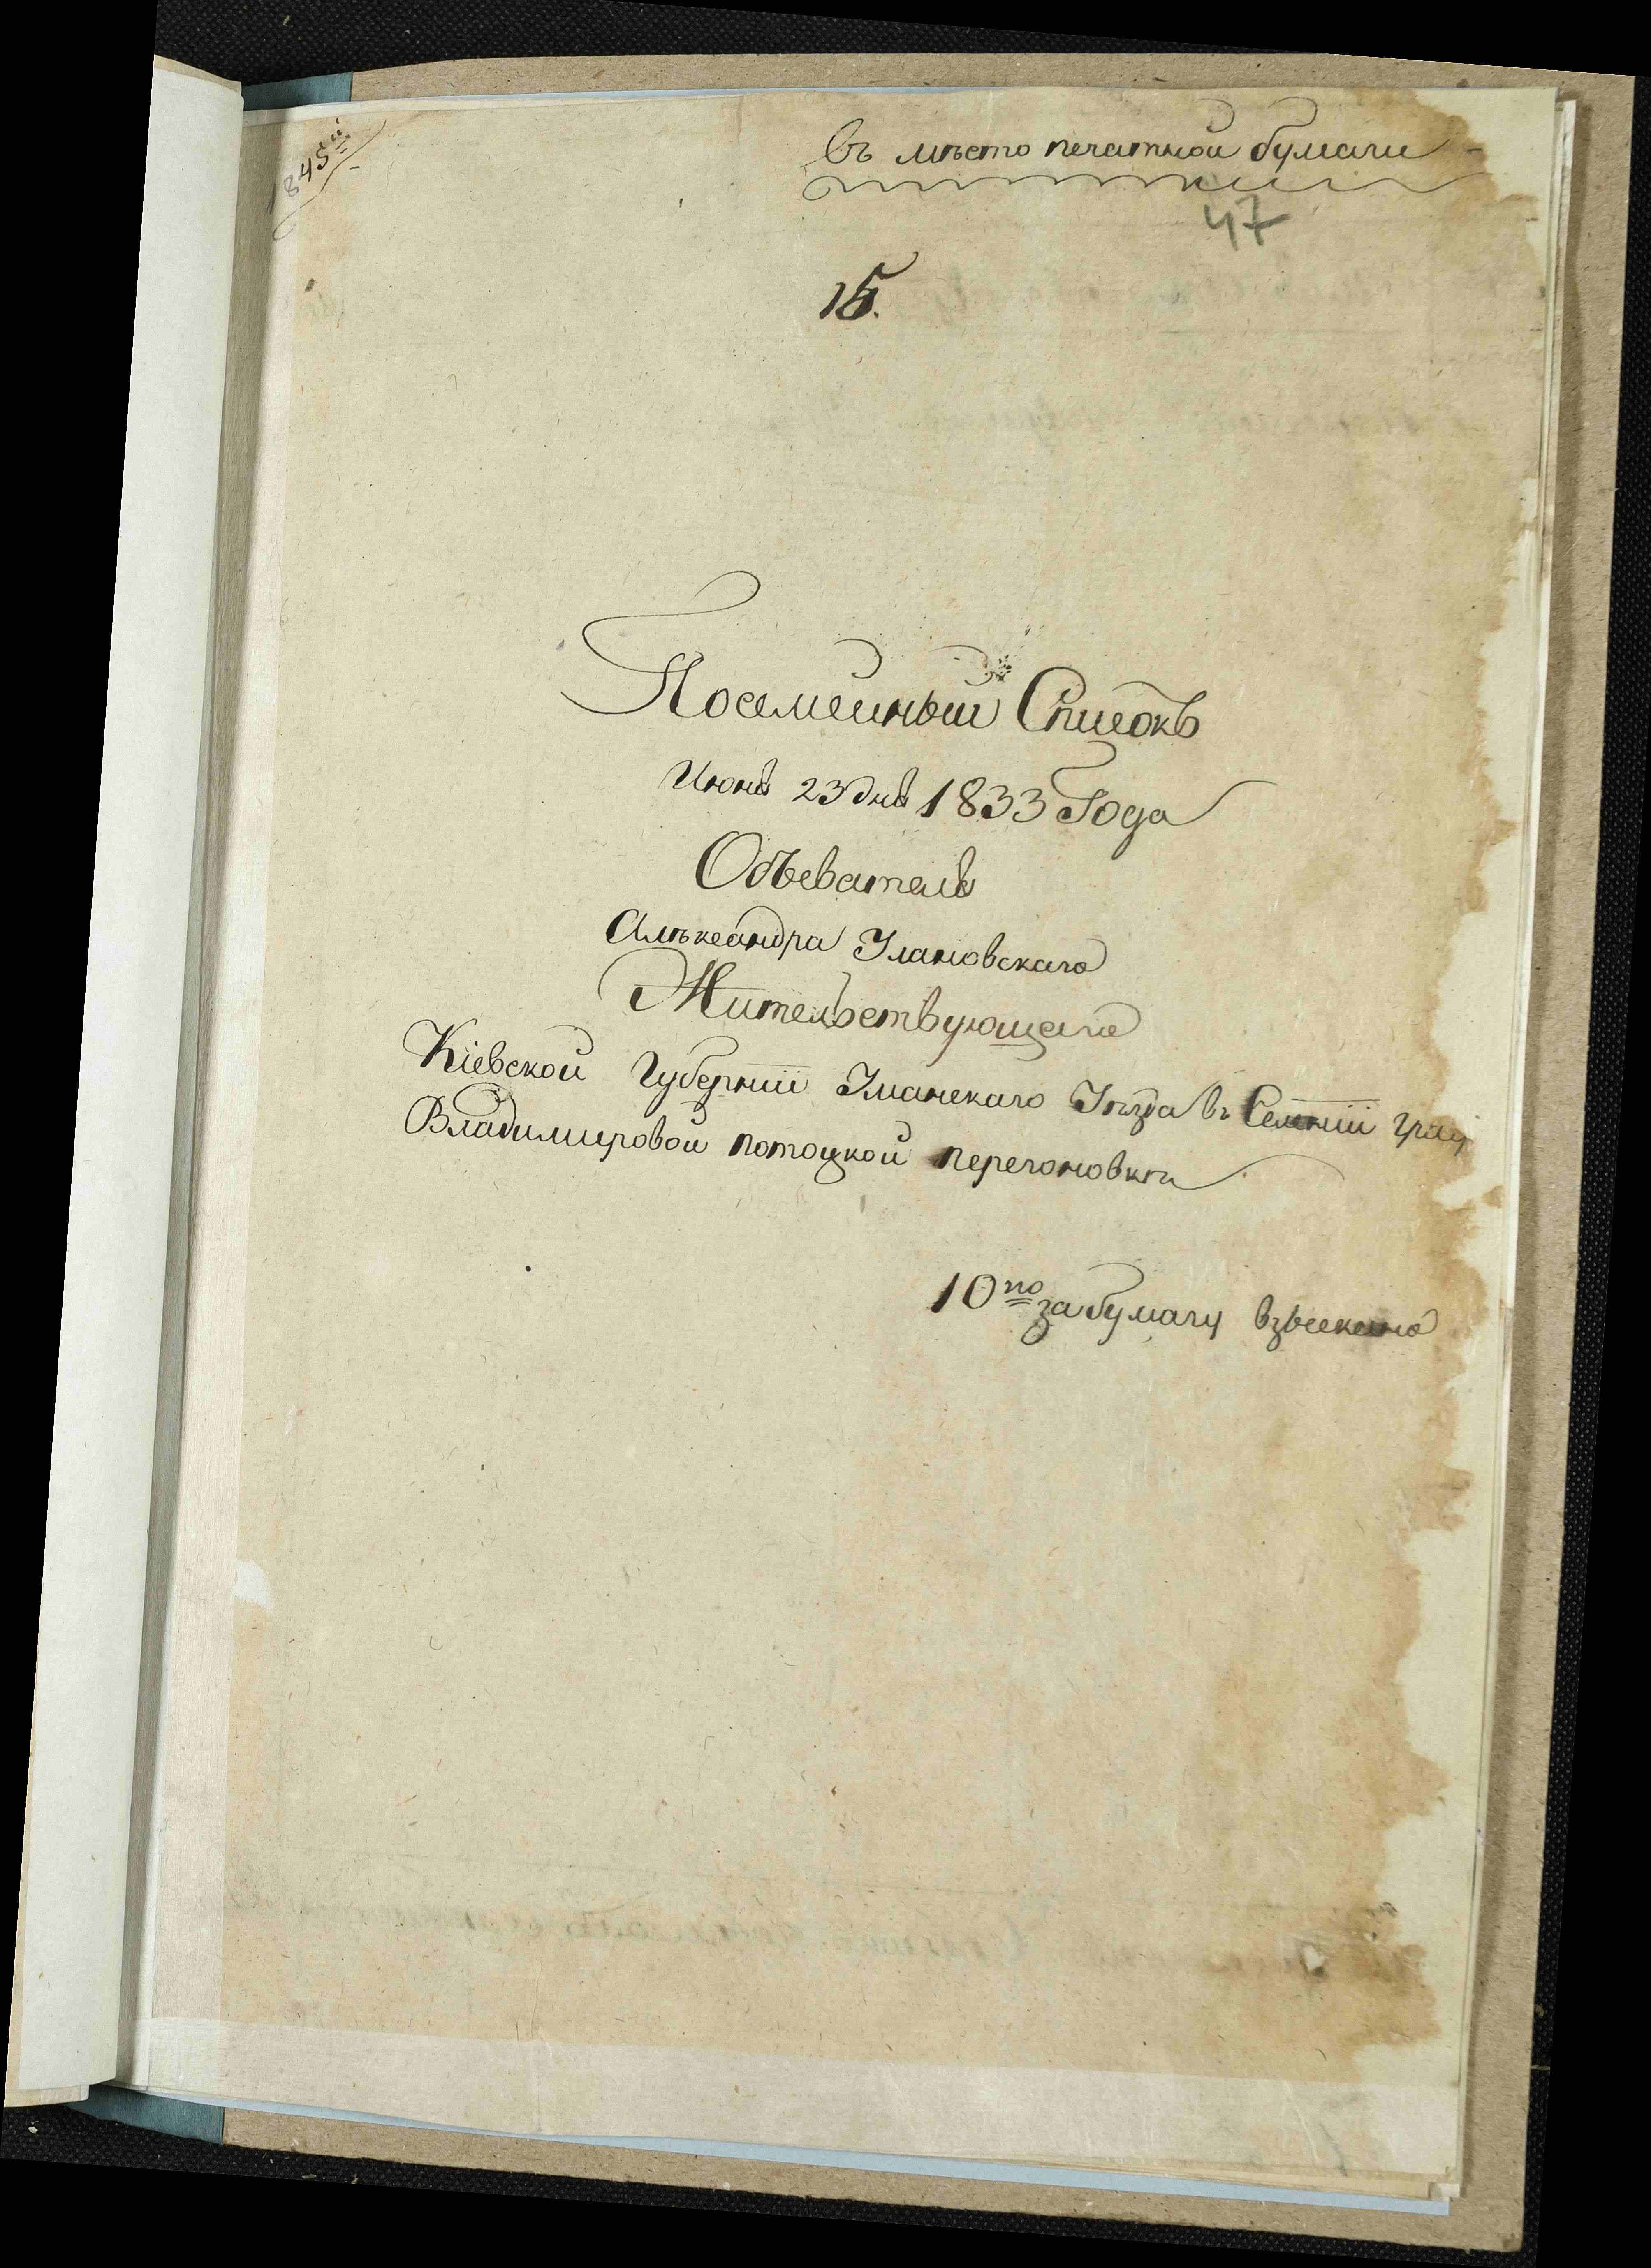 1845й
Въ мѣсто печатной бумаги
47
15.
Посемейный Списокъ
Июня 23 дня 1833 Года
Объвателя
Алѣксандра Улановскаго
Жительствующаго
Кіевской Губерніи Уманскаго Уѣзда въ Селеніи
Владимировой потоцкой перегоновки
10 за бумагу взыскано